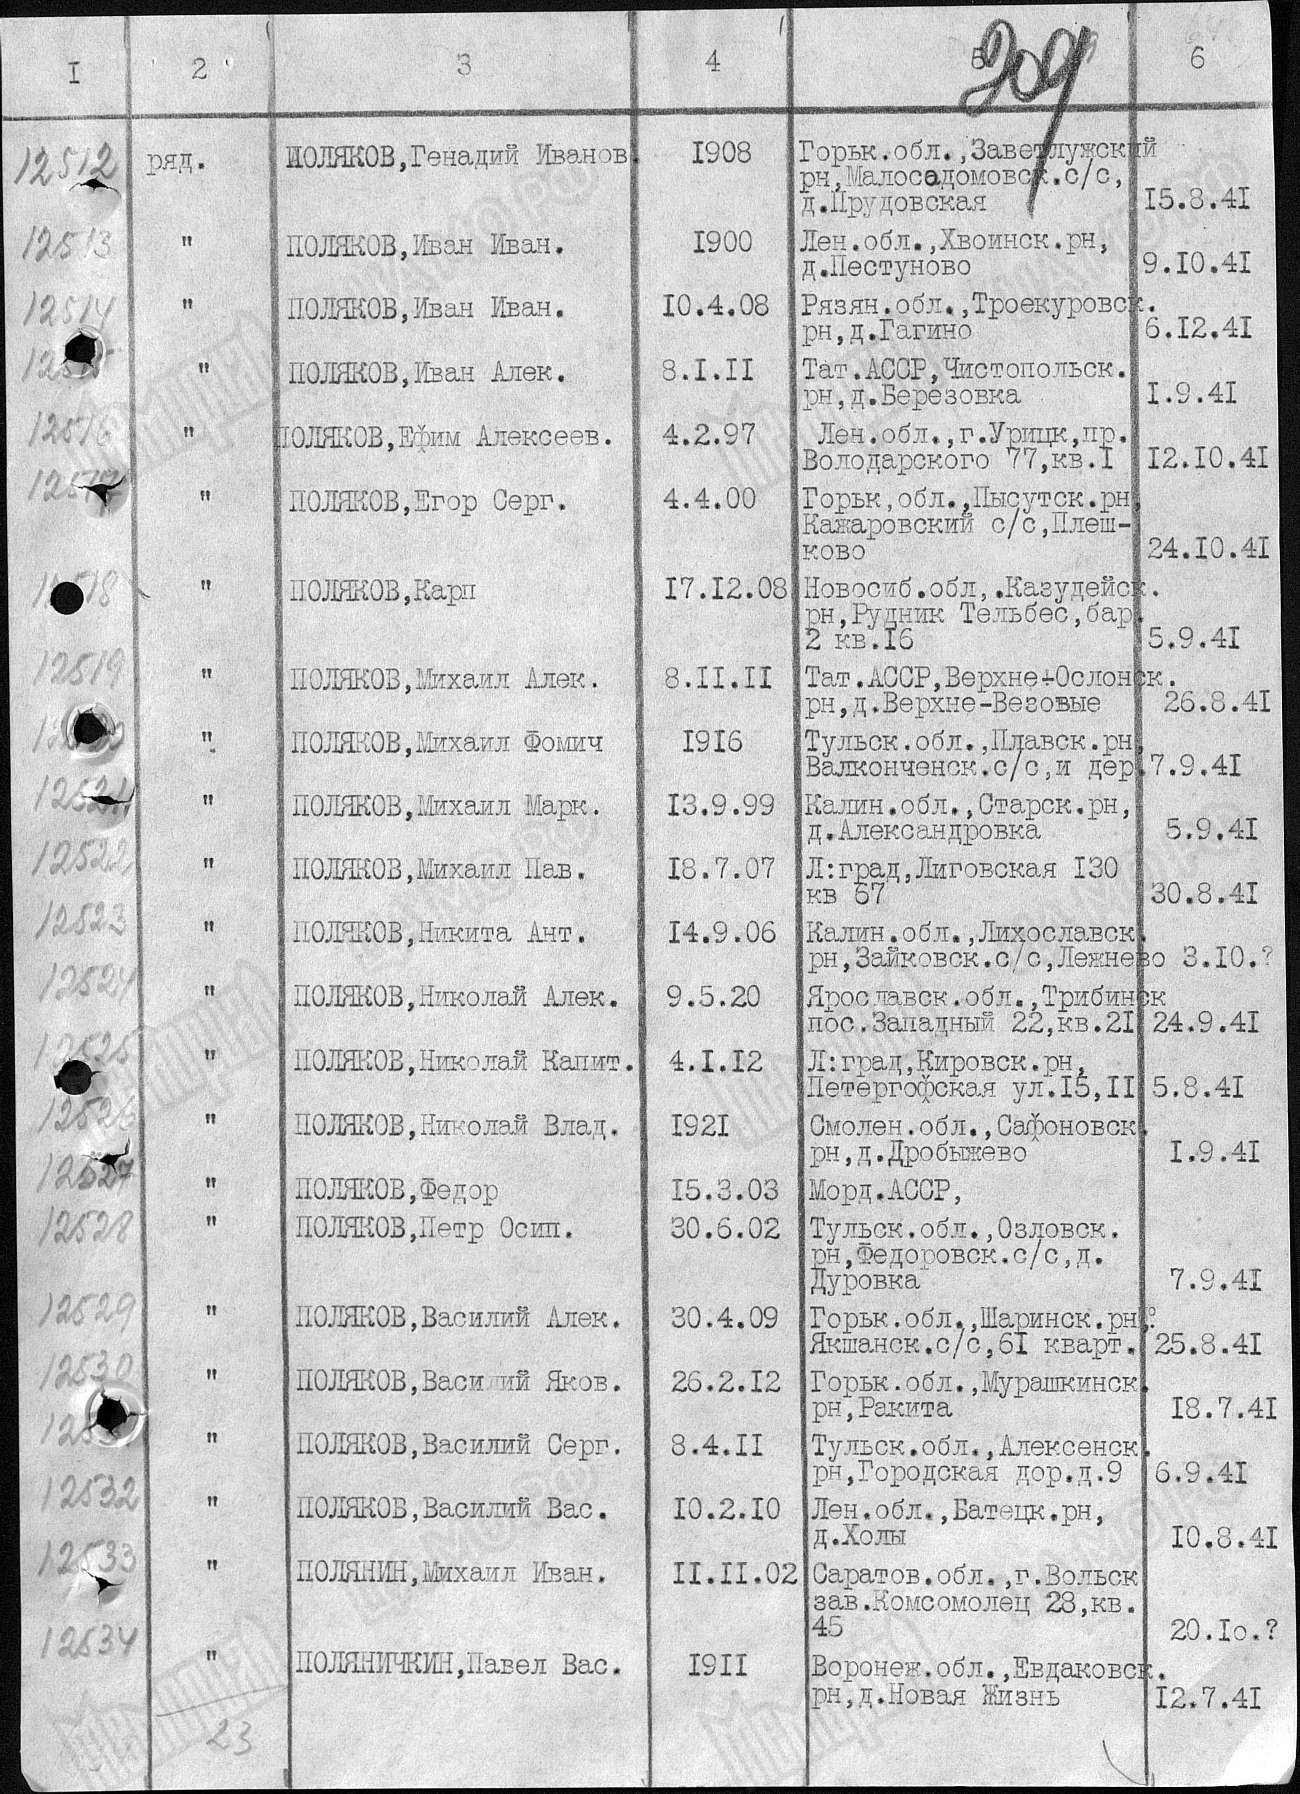 209
I 2 3 4 5 6
12512 ряд. ПОЛЯКОВ,Генадий Иванов. I908 Горьк.обл.,Заветлужский
рн,Малосодомовск.с/с,
д.Прудовская I5.8.4I
12513 " ПОЛЯКОВ,Иван Иван. I900 Лен.обл.,Хвоинск.рн,
д.Пестуново 9.I0.4I
12514 " ПОЛЯКОВ,Иван Иван. I0.4.08 Рязян.обл.,Троекуровск.
рн,д.Гагино 6.I2.4I
" ПОЛЯКОВ,Иван Алек. 8.I.II Тат.АССР,Чистопольск.
рн,д.Березовка I.9.4I
12516 " ПОЛЯКОВ,Ефим Алексеев. 4.2.97 Лен.обл.,г.Урицк,пр.
Володарского 77,кв.I I2.I0.4I
12517 " ПОЛЯКОВ,Егор Серг. 4.4.00 Горьк,обл.,Пысутск.рн,
Кажаровский с/с,Плеш-
ково 24.I0.4I
" ПОЛЯКОВ,Карп I7.I2.08 Новосиб.обл,.Казудейск.
рн,Рудник Тельбес,бар.
2 кв.I6 5.9.4I
12519 " ПОЛЯКОВ,Михаил Алек. 8.II.II Тат.АССР,Верхне-Ослонск.
рн,д.Верхне-Везовые 26.8.4I
" ПОЛЯКОВ,Михаил Фомич I9I6 Тульск.обл.,Плавск.рн,
Валконченск.с/с,и дер.7.9.4I
12521 " ПОЛЯКОВ,Михаил Марк. I3.9.99 Калин.обл.,Старск.рн,
д.Александровка 5.9.4I
12522 " ПОЛЯКОВ,Михаил Пав. I8.7.07 Л:град,Лиговская I30
кв 67 30.8.4I
12523 " ПОЛЯКОВ,Никита Ант. I4.9.06 Калин.обл.,Лихославск.
рн,Зайковск.с/с,Лежнево 3.I0.?
12524 " ПОЛЯКОВ,Николай Алек. 9.5.20 Ярославск.обл.,Трибинск
пос.Западный 22,кв.2I 24.9.4I
12525 " ПОЛЯКОВ,Николай Капит. 4.I.I2 Л:град,Кировск.рн,
Петергофская ул.I5,II 5.8.4I
12526 " ПОЛЯКОВ,Николай Влад. I92I Смолен.обл.,Сафоновск.
рн,д.Дробыжево I.9.4I
12527 " ПОЛЯКОВ,Федор I5.3.03 Морд.АССР,
12528 " ПОЛЯКОВ,Петр Осип. 30.6.02 Тульск.обл.,Озловск.
рн,Федоровск.с/с,д.
Дуровка 7.9.4I
12529 " ПОЛЯКОВ,Василий Алек. 30.4.09 Горьк.обл.,Шаринск.рн,
Якшанск.с/с,6I кварт. 25.8.4I
12530 " ПОЛЯКОВ,Василий Яков. 26.2.I2 Горьк.обл.,Мурашкинск.
рн,Ракита I8.7.4I
" ПОЛЯКОВ,Василий Серг. 8.4.II Тульск.обл.,Алексенск.
рн,Городская дор.д.9 6.9.4I
12532 " ПОЛЯКОВ,Василий Вас. I0.2.I0 Лен.обл.,Батецк.рн,
д.Холы I0.8.4I
12533 " ПОЛЯНИН,Михаил Иван. II.II.02 Саратов.обл.,г.Вольск
зав.Комсомолец 28,кв.
45 20.Iо.?
12534 " ПОЛЯНИЧКИН,Павел Вас. I9II Воронеж.обл.,Евдаковск.
рн,д.Новая Жизнь I2.7.4I
23